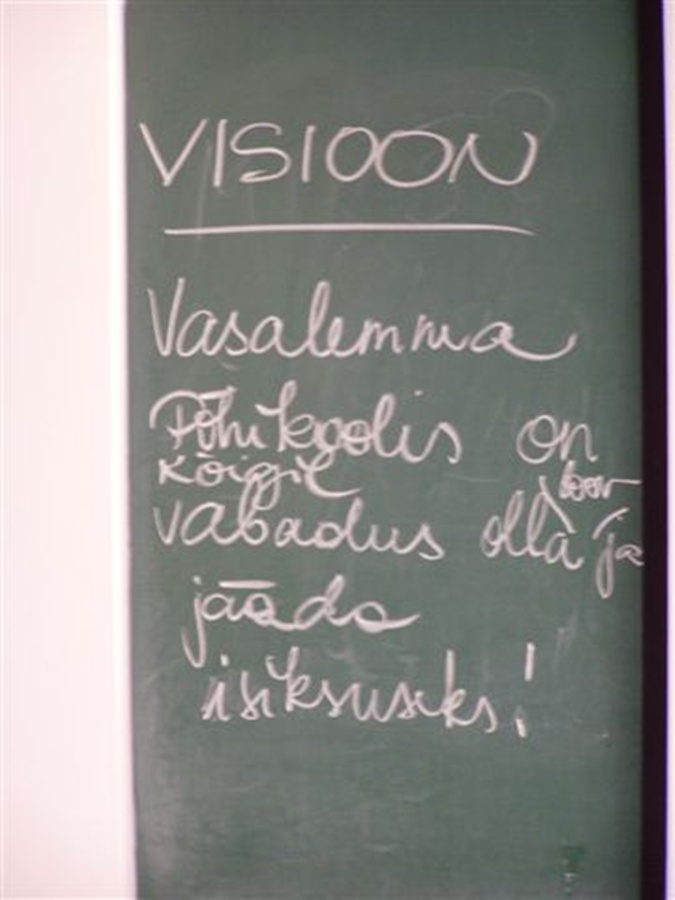 VISIOON
Vasalemma
Põhikoolis on
kõigil
loov
vabadus olla ja
jääda
isiksuseks!